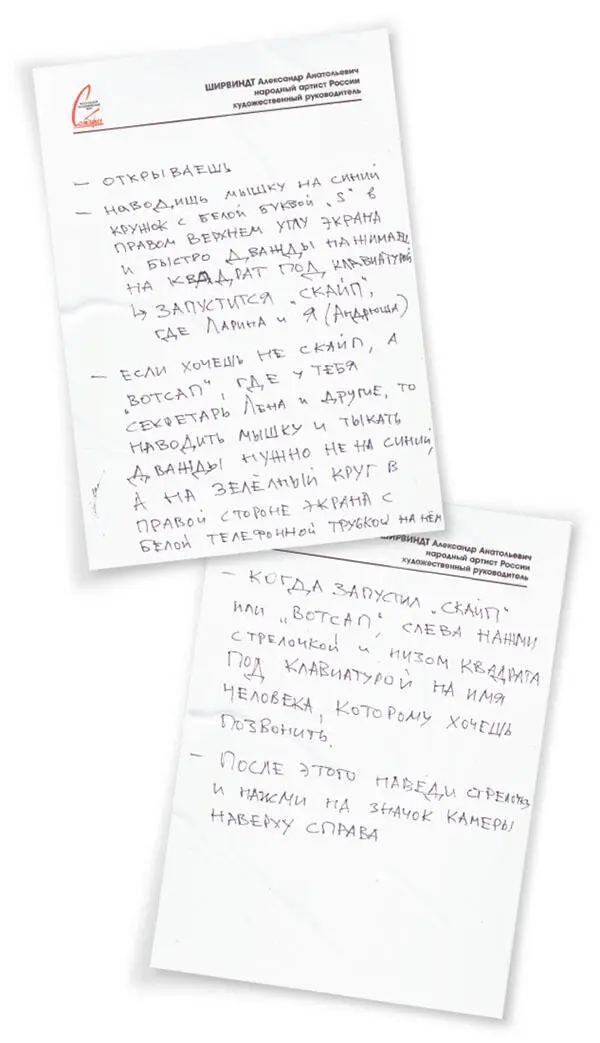 Сатира
ШИРВИНДТ Александр Анатольевич
народный артист России
художественный руководитель
— ОТКРЫВАЕШЬ
— НАВОДИШЬ МЫШКУ НА СИНИЙ
КРУЖОК С БЕЛОЙ БУКВОЙ „S" В
ПРАВОМ ВЕРХНЕМ УГЛУ ЭКРАНА
И БЫСТРО ДВАЖДЫ НАЖИМАЕШЬ
НА КВАДРАТ ПОД КЛАВИАТУРОЙ
↳ ЗАПУСТИТСЯ „СКАЙП",
ГДЕ ЛАРИНА И Я (АНДРЮША)
— ЕСЛИ ХОЧЕШЬ НЕ СКАЙП, А
„ВОТСАП", ГДЕ У ТЕБЯ
СЕКРЕТАРЬ ЛЕНА И ДРУГИЕ, ТО
НАВОДИТЬ МЫШКУ И ТЫКАТЬ
ДВАЖДЫ НУЖНО НЕ НА СИНИЙ,
А НА ЗЕЛЁНЫЙ КРУГ В
ПРАВОЙ СТОРОНЕ ЭКРАНА С
БЕЛОЙ ТЕЛЕФОННОЙ ТРУБКОЙ НА НЁМ
ШИРВИНДТ Александр Анатольевич
народный артист России
художественный руководитель
— КОГДА ЗАПУСТИЛ „СКАЙП"
ИЛИ „ВОТСАП", СЛЕВА НАЖМИ
СТРЕЛОЧКОЙ И НИЗОМ КВАДРАТА
ПОД КЛАВИАТУРОЙ НА ИМЯ
ЧЕЛОВЕКА, КОТОРОМУ ХОЧЕШЬ
ПОЗВОНИТЬ.
— ПОСЛЕ ЭТОГО НАВЕДИ СТРЕЛОЧКУ
И НАЖМИ НА ЗНАЧОК КАМЕРЫ
НАВЕРХУ СПРАВА